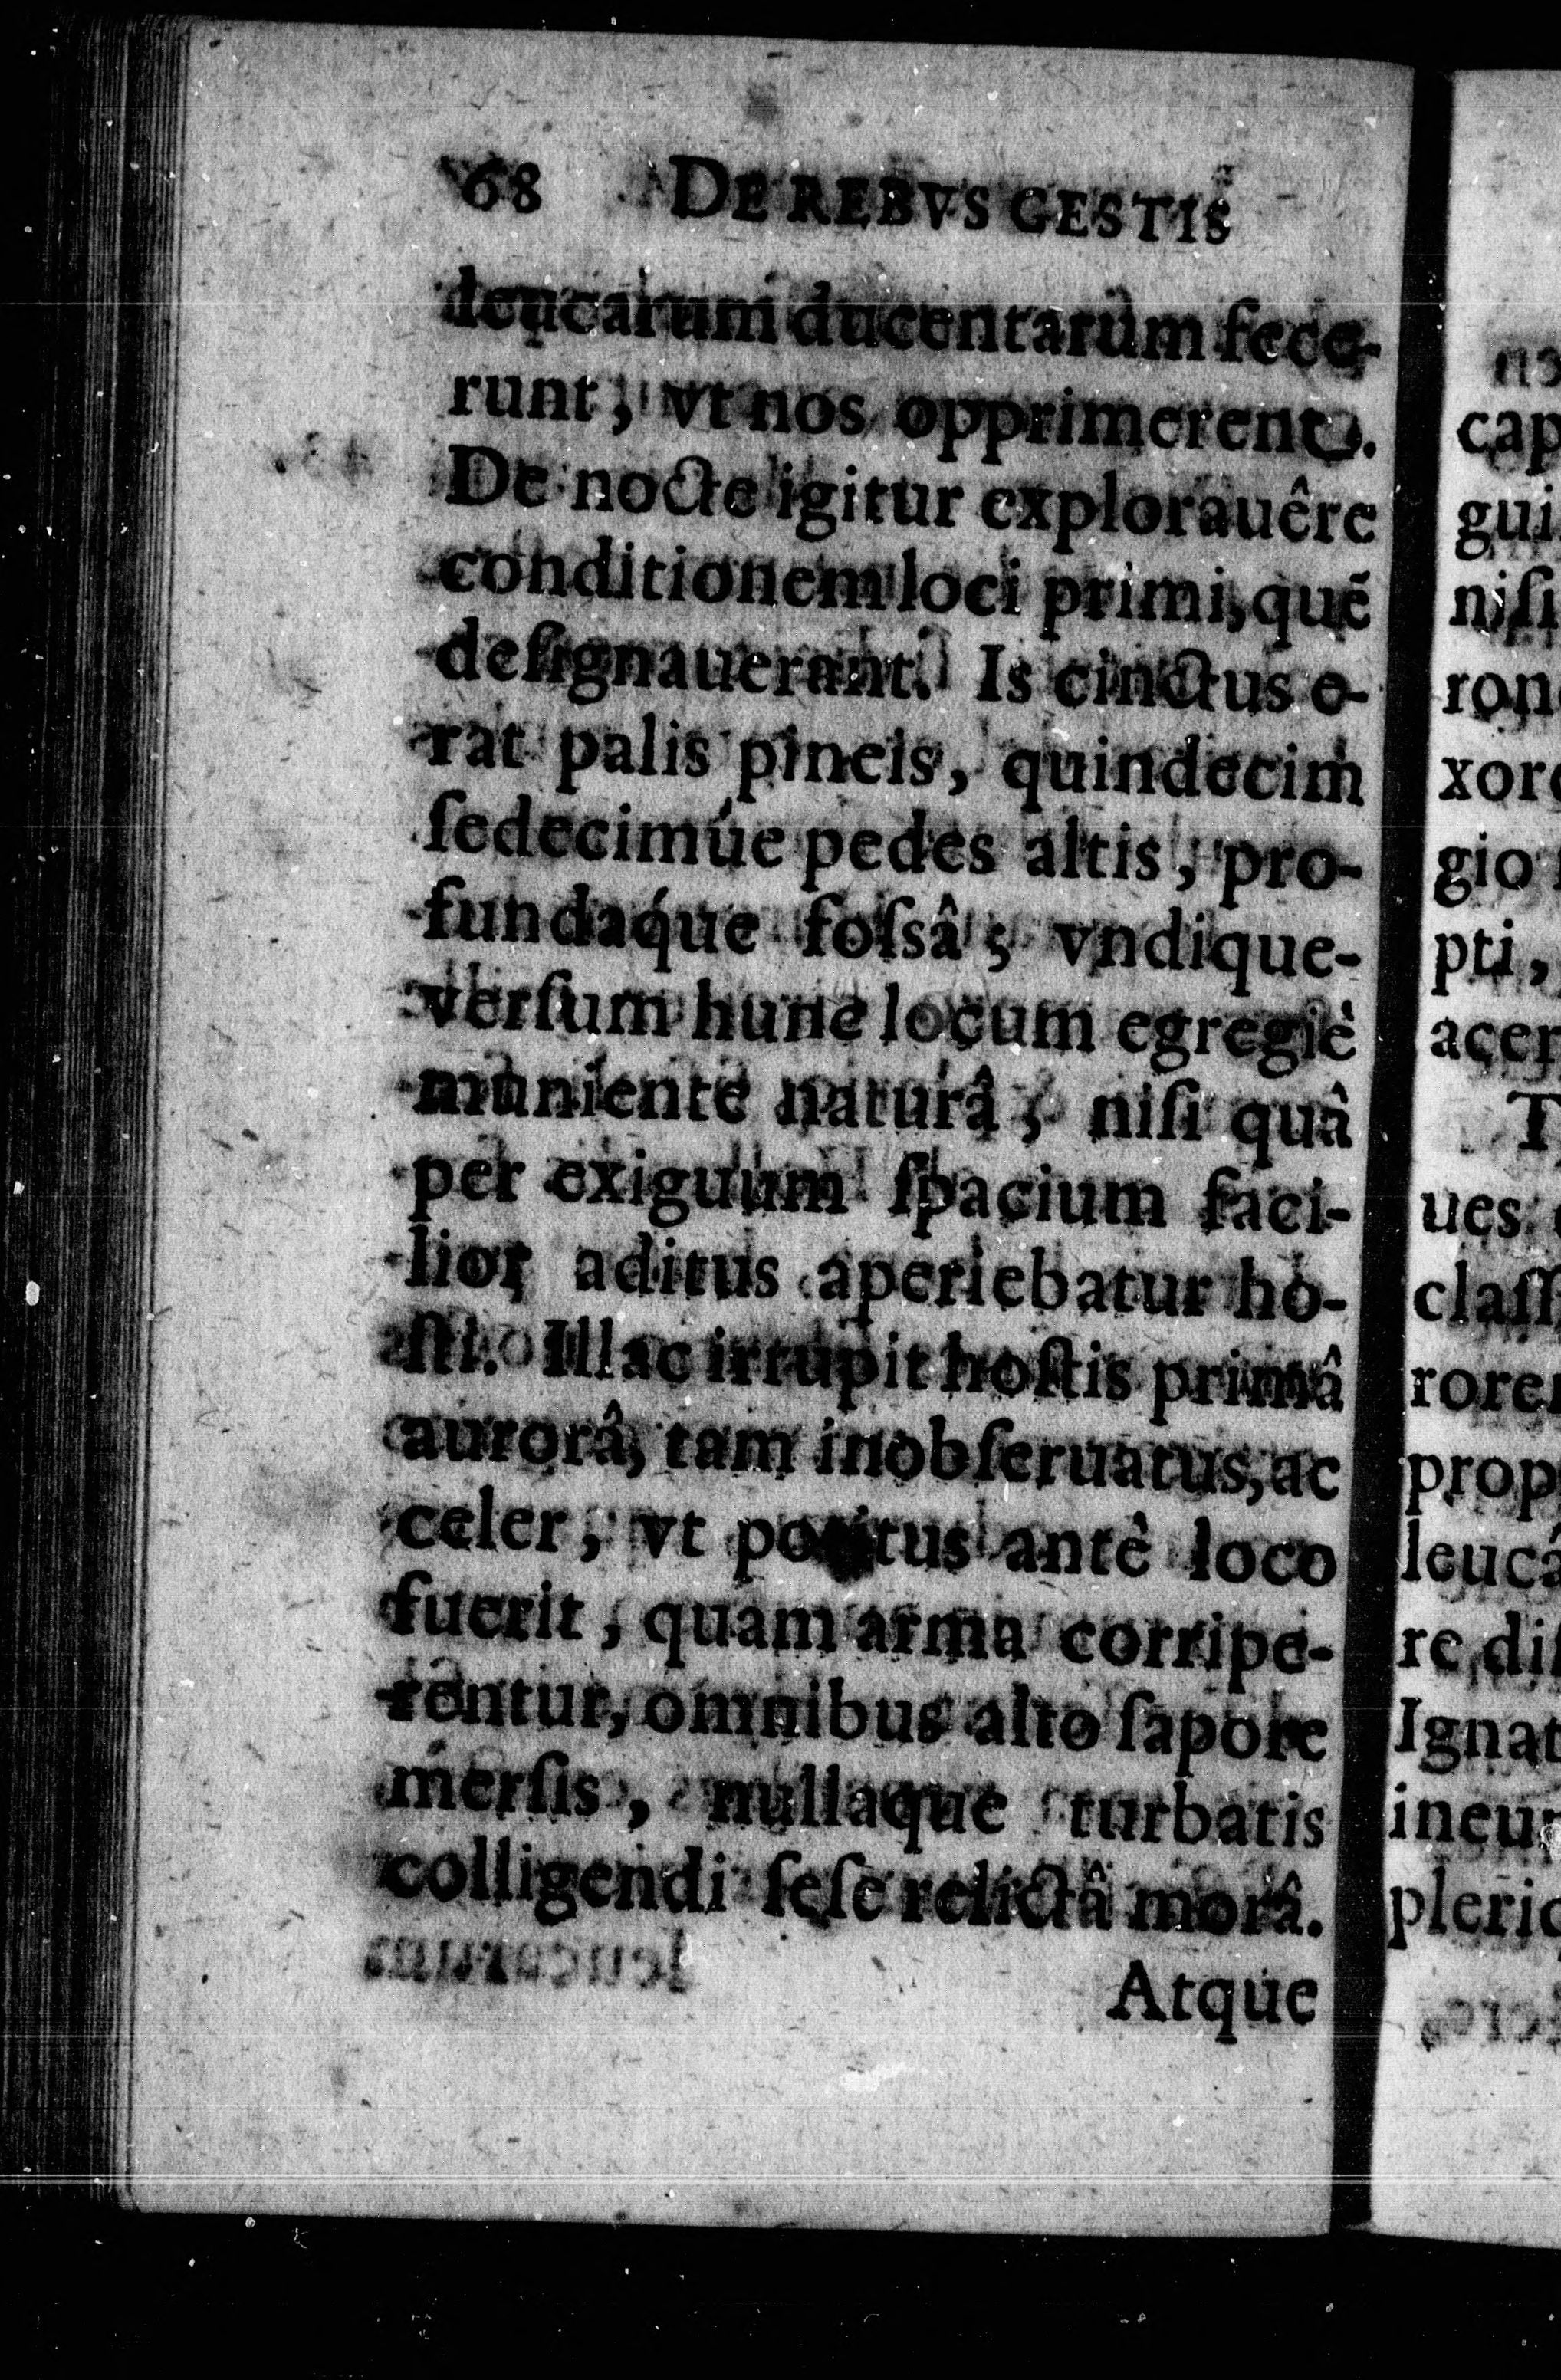 68 DE REBVS GESTIS
leucarum ducentarum fece-
runt, vt nos opprimerent.
De nocte igitur explorauêre
conditionem loci primi, quẽ
deſignauerant. Is cinctus e-
rat palis pineis, quindecim
ſedecimúe pedes altis, pro-
fundaq́ue foſsâ; vndique-
verſum hunc locum egregiè
muniente naturâ, niſi quâ
per exiguum ſpacium faci-
lior aditus aperiebatur ho-
ſti. Illac irrupit hoſtis primâ
aurorâ, tam inobſeruatus, ac
celer, vt potitus antè loco
fuerit, quam arma corripe-
rentur, omnibus alto ſapore
merſis, nullaque turbatis
colligendi ſeſe relictâ morâ.
Atque
cap
gui
niſi
ron
xor
gio
pti,
acer
T
ues
claſſ
rore
prop
leucâ
re diſ
Ignat
ineun
pleriq